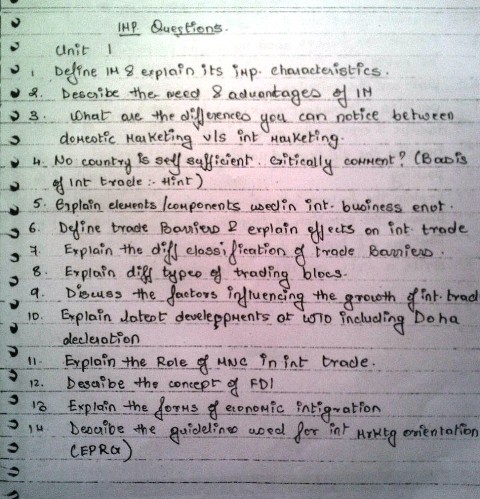 IMP Questions.
Unit 1
1. Define IM & explain its imp. characteristics.
2. Describe the need & advantages of IM
3. What are the differences you can notice between
domestic Marketing v/s int Marketing.
4. No country is self sufficient. Critically comment? (Basis
of Int trade :- Hint)
5. Explain elements/components used in int. business envt.
6. Define trade Barriers & explain effects on int. trade
7. Explain the diff classification of trade Barriers.
8. Explain diff types of trading blocs.
9. Discuss the factors influencing the growth of int. trad
10. Explain latest developpments at WTO including Doha
decleration
11. Explain the Role of MNC in int trade.
12. Describe the concept of FDI
13 Explain the forms of economic intigration
14. Describe the guidelines used for int Mrktg orientation
(EPRG)